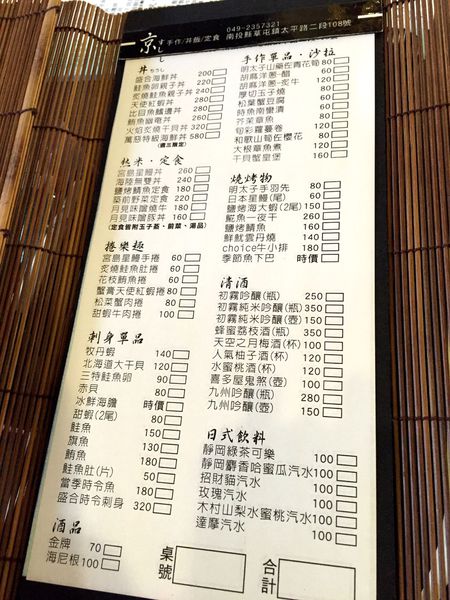 京 すし 手作/丼飯/定食
049-2357321
南投縣草屯鎮太平路二段108號
丼 むうし
盛合海鮮丼 200
鮭魚卵親子丼 220
炙燒鮭魚親子丼 240
天使紅蝦丼 280
比目魚鱸邊丼 280
鮪魚幽庵丼 260
火焰炙燒干貝丼 320
萬惡特級海鮮丼 520
(週三限定)
熱米·定食
宮島星鰻丼 260
海陸無雙丼 240
鹽烤鯖魚定食 180
築前野菜定食 220
月見味噌燒牛 180
月見味噌豚丼 160
(定食皆附玉子蒸、前菜、湯品)
捲樂趣
宮島星鰻手捲 60
炙燒鮭魚肚捲 60
花枝鮪魚捲 60
蟹膏天使紅蝦捲 80
松菜蟹肉捲 60
甜蝦牛肉捲 100
刺身單品
牧丹蝦 140
北海道大干貝 120
三特鮭魚卵 90
赤貝 80
冰鮮海膽 時價
甜蝦(2尾) 80
鮭魚 150
旗魚 130
鮪魚 180
鮭魚肚(片) 50
當季時令魚 180
盛合時令刺身 320
酒品
金牌 70
海尼根 100
手作單品·沙拉
明太子山藥佐青花筍 80
胡麻洋蔥-醋 60
胡麻洋蔥-炙牛 80
厚切玉子燒 60
松葉蟹豆腐 80
時魚南蠻漬 80
芥茉章魚 80
旬彩蘿蔓卷 120
和歌山筍佐櫻花 80
大根章魚煮 120
干貝蟹皇堡 160
燒烤物
明太子手羽先 80
日本星鰻(尾) 80
鹽烤海大蝦(2尾) 150
魷魚一夜干 260
鹽烤鯖魚 160
鮮魷雲丹燒 140
choice牛小排 180
季節魚下巴 時價
清酒
初霧吟釀(瓶) 250
初霧純米吟釀(瓶) 350
初霧純米吟釀(壺) 150
蜂蜜荔枝酒(瓶) 350
天空之月梅酒(杯) 100
人氣柚子酒(杯) 120
水蜜桃酒(杯) 120
喜多屋鬼煞(壺) 100
九州吟釀(瓶) 280
九州吟釀(壺) 150
日式飲料
靜岡綠茶可樂 100
靜岡麝香哈蜜瓜汽水 100
招財貓汽水 100
玫瑰汽水 100
木村山梨水蜜桃汽水 100
達摩汽水 100
桌號
合計